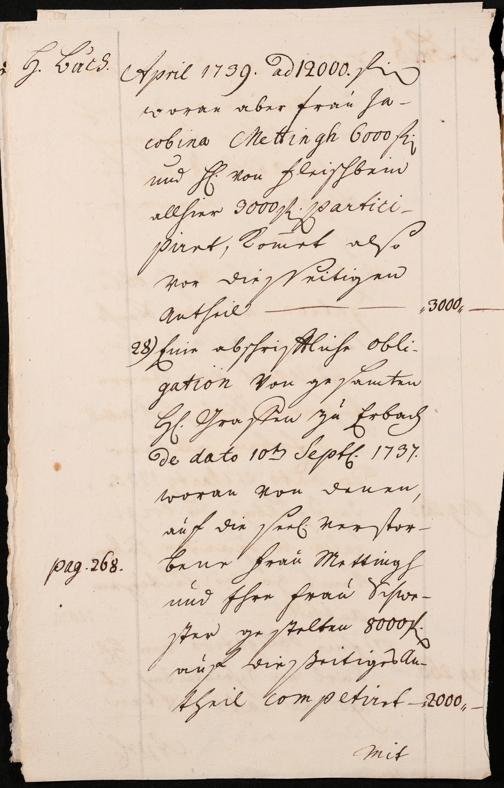 H. Buch.
April 1739. ad 12000. fl.
woran aber Frau Ja-
cobina Mettingh 6000 fl.
und H. von Fleischbein
allhier 3000 fl. partici-
piret, kom̄et also
vor diesseitigen
Antheil — „3000„
28) Eine abschriftliche obli-
gation von gesamten
HH. Graffen zu Erbach
de dato 10ten Septbr. 1737.
woran von denen,
auf die seel. verstor-
pag. 268.
bene Frau Mettingh
und Ihre Frau Schwe-
ster gestelten 8000 fl.
auf diesseitiges An-
theil competiret — „2000„
mit